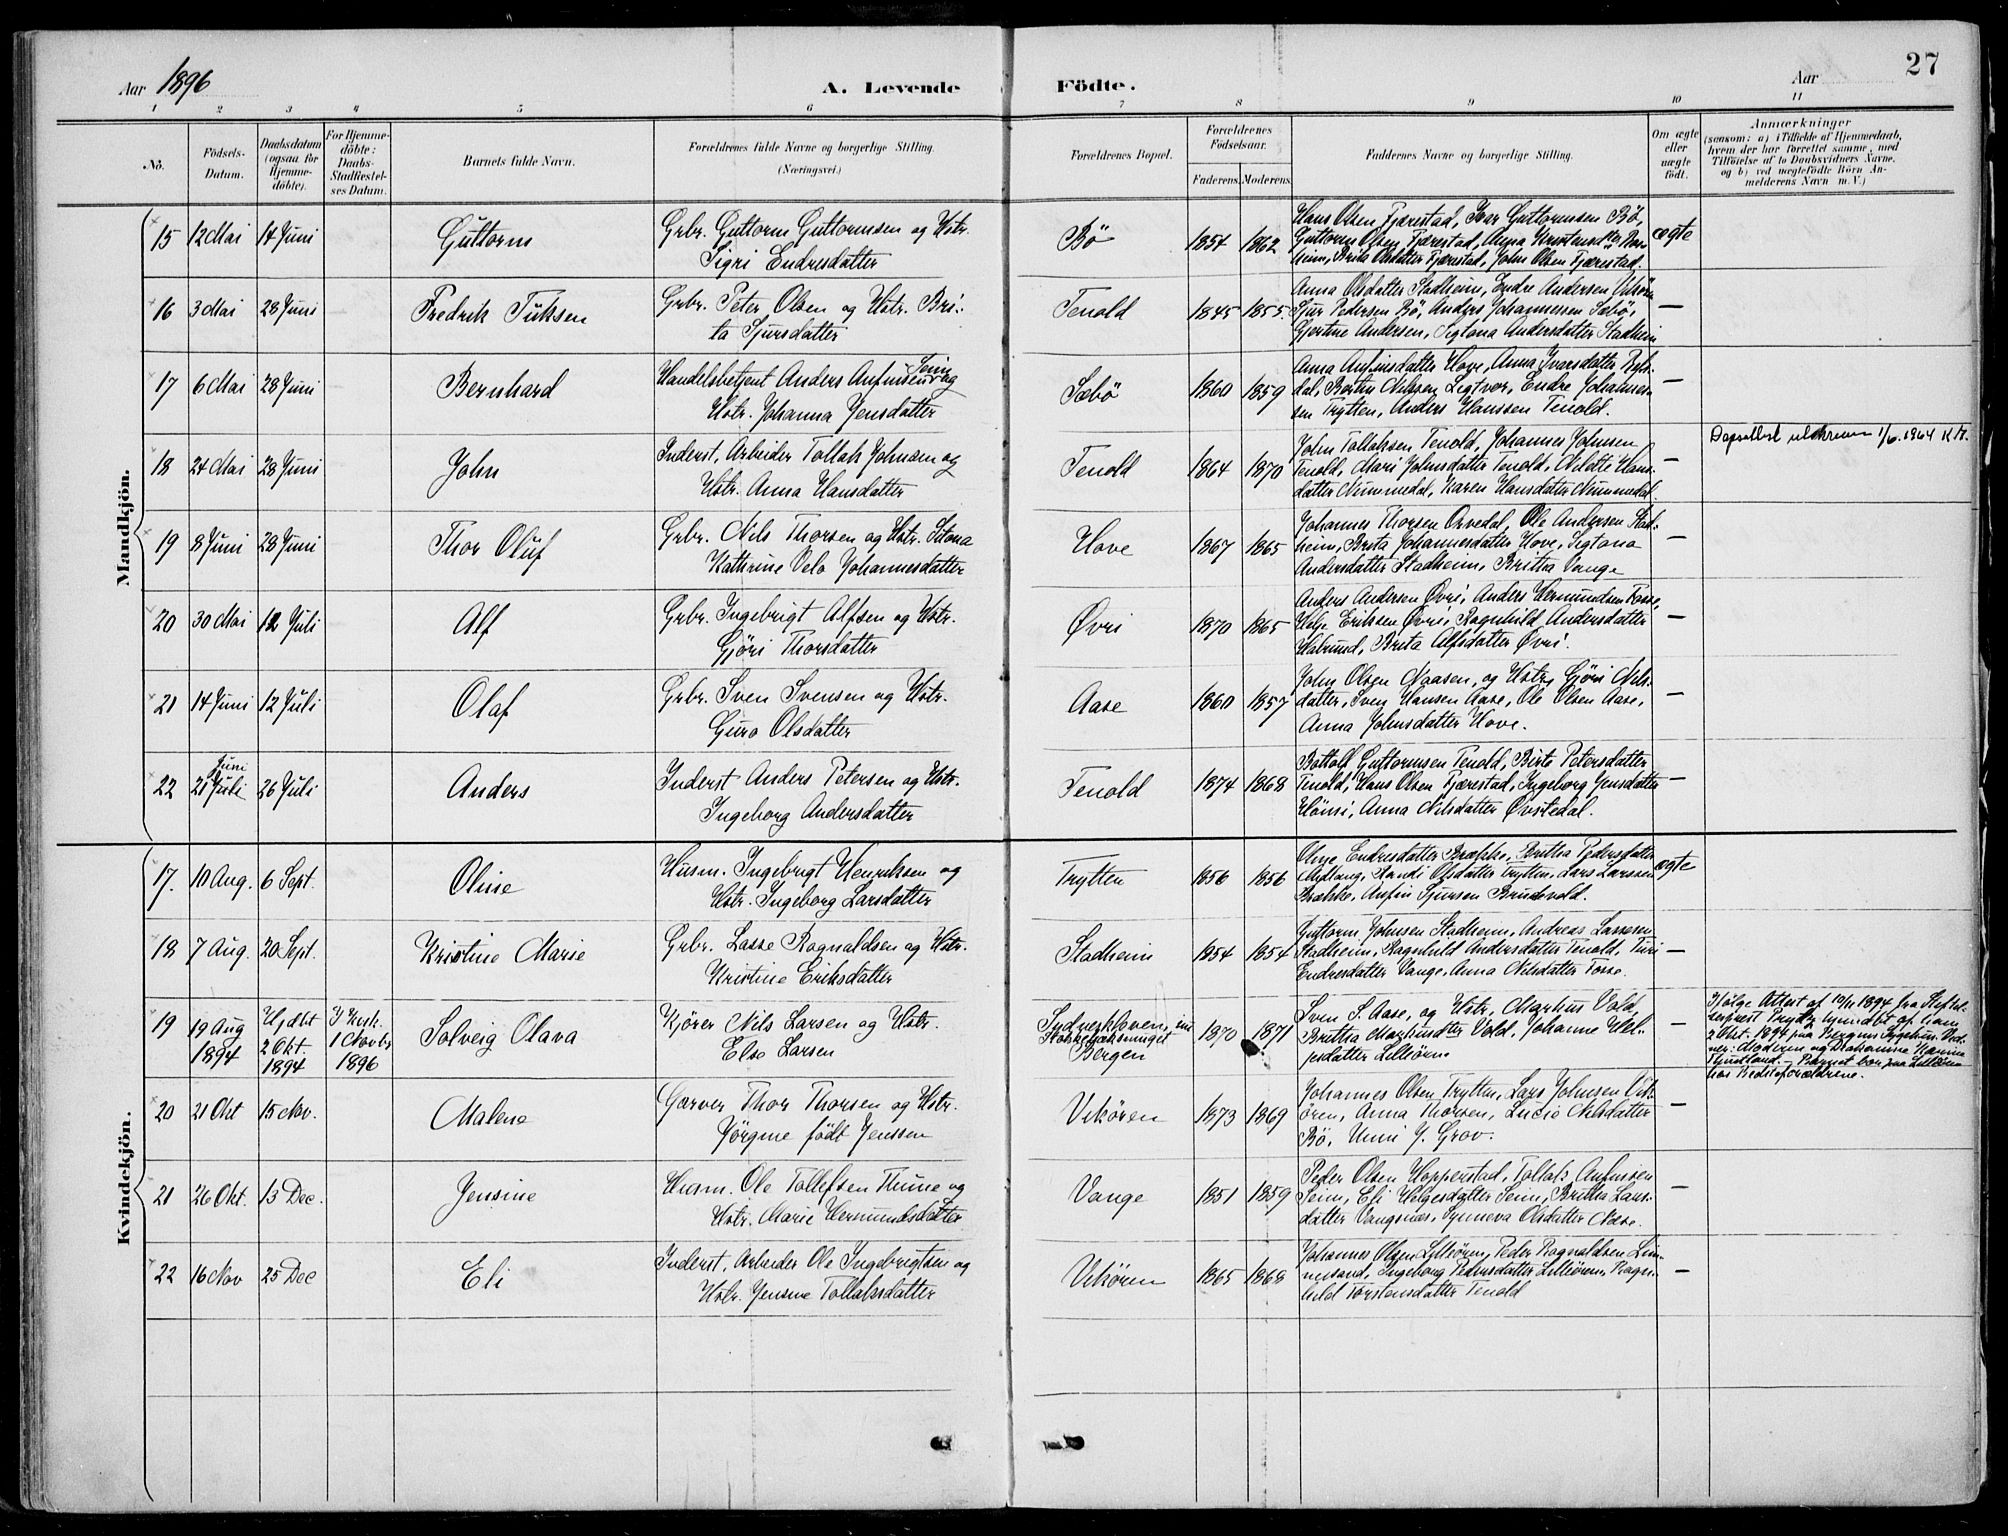 27
Aar 1896 A. Levende Födte. Aar
1 2 3 4 5 6 7 8 9 10 11
No.
Födsels-
Datum.
Daabsdatum
(ogsaa for
Hjemme-
döbte).
For Hjemme-
döbte:
Daabs-
Stadfæstel-
ses Datum.
Barnets fulde Navn.
Forældrenes fulde Navne og borgerlige Stilling.
(Næringsvei.)
Forældrenes Bopæl.
Forældrenes
Födselsaar.
Faderens. Moderens.
Faddernes Navne og borgerlige Stilling.
Om ægte
eller
uægte
födt.
Anmærkninger
(saasom: a) i Tilfælde af Hjemmedaab,
hvem der har forrettet samme, med
Tilföielse af to Daabsvidners Navne.
og b) ved uægtefödte Börn An-
melderens Navn m. V.)
Mandkjön.
15 12 Mai 14 Juni Guttorm Grbr. Guttorm Guttormsen og Hstr.
Sigri Endresdatter
Bö 1854 1862 Hans Olsen Fjærestad, Ivar Guttormsen Bö,
Guttorm Olsen Fjærestad, Anna
Brita Olsdatter Fjærestad, John Olsen Fjærestad.
ægte
16 3 Mai 28 Juni Fredrik Tuksen Grbr. Peter Olsen og Hstr. Bri-
ta Sjursdatter
Tenold 1845 1855. Anna Olsdatter Stadheim, Endre Andersen Vikören
Sjur Pedersen Bö, Anders Johannessen Sæbö,
Gjertine Andersen, Sigtona Andersdatter Stadheim
—
17 6 Mai 28 Juni Bernhard Handelsbetjent Anders Anfinsen Seim og
Hstr. Johanna Jensdatter
Sæbö 1860 1859 Anna Anfinsdatter Hove, Anna Ivarsdatter
dal, Bertin Nilsson Ligtvor, Endre Johannes-
sen Trytten, Anders Hanssen Tenold.
—
18 24 Mai 28 Juni John Inderst, Arbeider Tollak Johnsen og
Hstr. Anna Hansdatter
Tenold 1864 1870 John Tollaksen Tenold, Johannes Johnsen
Tenold, Mari Johnsdatter Tenold, Nilette Hans-
datter Nummedal, Karen Hansdatter Nummedal.
—
1/6. 1964 K.M.
19 8 Juni 28 Juni Thor Oluf Grbr. Nils Thorsen og Hstr. Sitona
Kathrine Velo Johannesdatter
Hove 1867 1865 Johannes Thorsen Orvedal, Ole Andersen Stad-
heim, Brita Johannesdatter Hove, Sigtona
Andersdatter Stadheim, Britha Vange
—
20 30 Mai 12 Juli Alf Grbr. Ingebrigt Alfsen og Hstr.
Gjöri Thorsdatter
Øvri 1870 1865 Anders Andersen Øvri, Anders Hermundsen Fosse,
Helje Eriksen Øvri, Ragnhild Andersdatter
Brita Alfsdatter Øvri.
—
21 14 Juni 12 Juli Olaf Grbr. Sven Svensen og Hstr.
Guro Olsdatter
Aase 1860 1857 John Olsen Naasen, og Hstr. Gjöri Nils-
datter, Sven Hansen Aase, Ole Olsen Aase,
Anna Johnsdatter Hove.
—
22 Juni
21 Juli 26 Juli Anders Inderst Anders Petersen og Hstr.
Ingeborg Andersdatter
Tenold 1874 1868 Bottolf Guttormsen Tenold, Birte Petersdatter
Tenold, Hans Olsen Fjærestad, Ingeborg Jensdatter
Hönsi, Anna Nilsdatter Øvstedal.
—
Kvindekjön.
17. 10 Aug. 6 Sept. Oline Husm. Ingebrigt Henriksen og
Hstr. Ingeborg Larsdatter
Trytten 1856 1856 Endresdatter Brække, Britha Pedersdatter
Midlang, Randi Olsdatter Trytten, Lars Larssen
Brække, Anfin Sjursen Brudevold.
ægte
18 7 Aug. 20 Sept. Kristine Marie Grbr. Lasse Ragnaldsen og Hstr.
Kristine Eriksdatter
Stadheim 1854 1854 Guttorm Johnsen Stadheim, Andreas Lassesen
Stadheim, Ragnhild Andersdatter Tenold, Turi
Endresdatter Vange, Anna Nilsdatter Fosse.
—
19 19 Aug
1894 Hjdbt
2 Okt.
1894 I Kirk.
1 Novbr
1896 Solveig Olava Kjörer Nils Larsen og Hstr.
Else Larsen
Bergen 1870 1871 Sven S. Aase, og Hstr, Markus Vold,
Britha Vold, Johanne Hel-
jesdatter Lilleören
—
Ifölge Attest af 10/11 1894 fra Stifts-
2 Okt. 1894 paa Bergens Sygehus. Vid-
ner: Moderen og Johanne Hanna
hos Bedsteforældrene.
20 21 Okt 15 Nov. Malene Garver Thor Thorsen og Hstr.
Jörgine födt Jenssen
Vikören 1873 1869 Johannes Olsen Trytten, Lars Johnsen Vik-
ören, Anna Thorsen, Lucie Nilsdatter
Bö, Unni J. Grov.
—
21 26 Okt. 13 Dec. Jensine Husm. Ole Tollefsen Thune og
Hstr. Marie Hermundsdatter
Vange 1851 1859 Peder Olsen Hopperstad, Tollak Anfinsen
Seim, Eli Helgesdatter Seim, Britha Lars-
datter Vangsnæs, Synneva Olsdatter Næse.
—
22 16 Nov 25 Dec Eli Inderst, Arbeider Ole Ingebrigtsen og
Hstr. Jensine Tollaksdatter
Vikören 1865 1868 Johannes Olsen Lilleören, Peder Ragnaldsen Lim-
mesand, Ingeborg Pedersdatter Lilleören, Ragn-
hild Torstensdatter Tenold
—